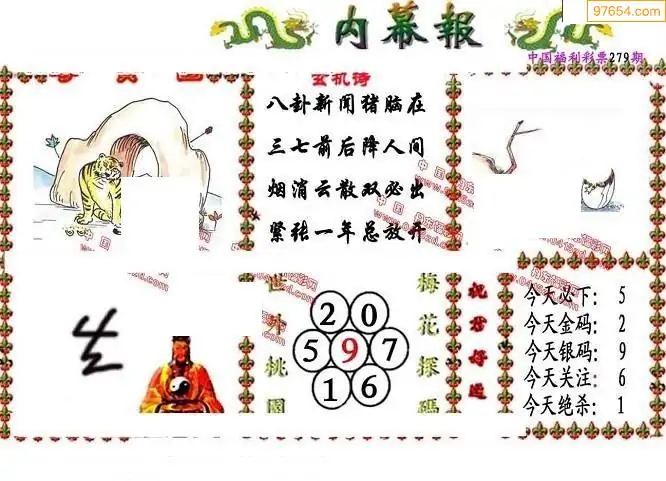 97654.com
内幕報
中国福利彩票279期
玄机诗
八卦新闻猪脑在
三七前后降人间
烟消云散双必出
紧张一年总放开
世外桃園
2 0
5 9 7
1 6
梅花探碼
祝君好运
今天必下: 5
今天金码: 2
今天银码: 9
今天关注: 6
今天绝杀: 1